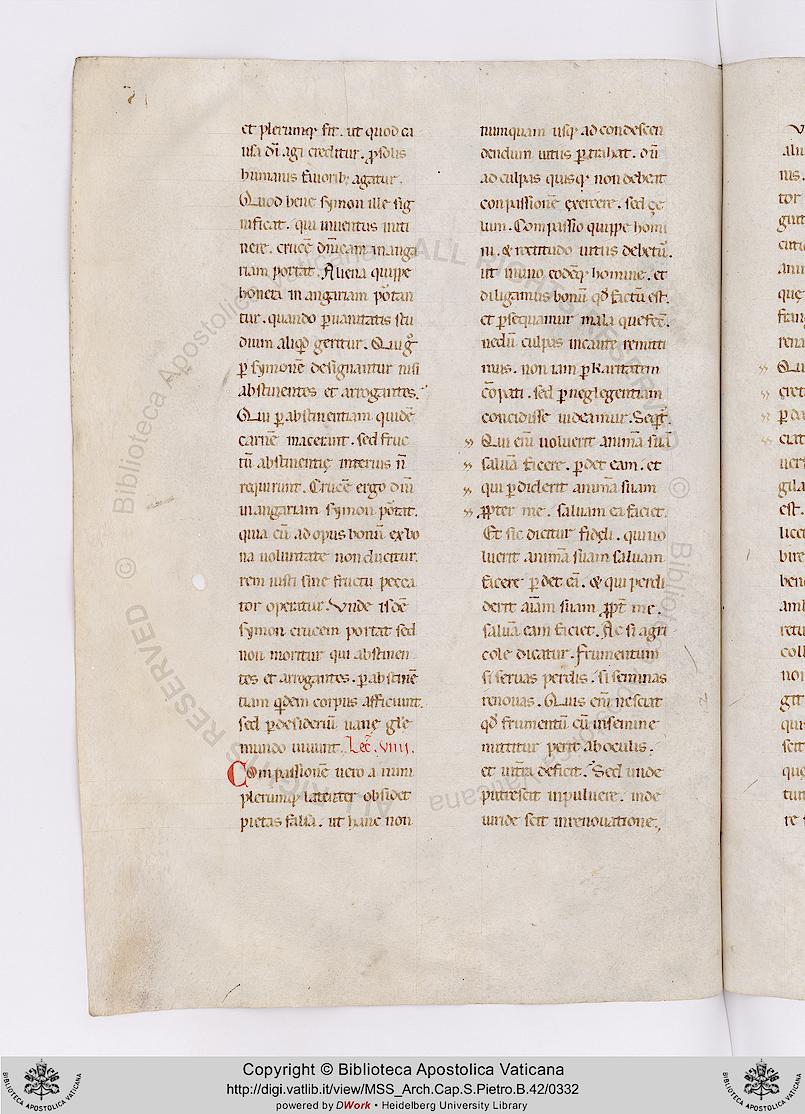 et plerumq; fit. ut quod ca
usa dñi agi creditur. ꝓ solis
humanis fauorib; agatur.
Quod bene symon ille sig
nificat. qui inuentus initi
nere. crucē dñicam in anga
riam portat. Aliena quippe
honera in angariam portan
tur. quando ꝑ uanitatis stu
dium aliqd geritur. Qui g̊
ꝑ symonē designantur nisi
abstinentes et arrogantes.
Qui ꝑ abstinentiam quidē
carnē macerant. sed fruc
tū abstinentię interius ñ
requirunt. Crucē ergo dñi
in angariam symon portat.
quia cū ad opus bonū ex bo
na uoluntate non ducitur.
rem iusti sine fructu pecca
tor operatur. Unde isdē
symon crucem portat sed
non moritur qui abstinen
tes et arrogantes. ꝑ abstinē
tiam qdem corpus afficiunt.
sed ꝑ desideriū uanę glę
mundo uiuunt. Lec̄. viiij.
Compassionē uero a nim
plerumq; latenter obsidet
pietas falsa. ut hanc non
numquam usq; ad condescen
dendum uitiis ꝑtrahat. dū
ad culpas quisq; non debent
conpassionē exercere. sed zę
lum. Compassio quippe homi
ni. & rectitudo uitiis debetur.
ut in uno eodēq; homine. et
diligamus bonū qd factū est.
et ꝑsequamur mala que fec̄.
ne dū culpas incaute remitti
mus. non iam ꝑ karitatem
cōpati. sed ꝑ neglegentiam
concidisse uideamur. Seqt̄.
» Qui eni uoluerit animā suā
» saluā facere. ꝑdet eam. et
» qui ꝑdiderit animā suam
» ꝓpter me. saluam eā faciet.
Et sic dicitur fideli. qui uo
luerit animā suam saluam
facere ꝑdet eā. & qui perdi
derit aīam suam ꝓpt̄ me.
saluā eam faciet. Ac si agri
cole dicatur. frumentum
si seruas perdis. si seminas
renouas. Quis eni nesciat
qd frumentū cū in semine
mittitur perit ab oculis.
et in t̄ra deficit. Sed unde
putrescit in puluere. inde
uiride scit in renouatione.
Copyright © Biblioteca Apostolica Vaticana
http://digi.vatlib.it/view/MSS_Arch.Cap.S.Pietro.B.42/0332
powered by DWork • Heidelberg University Library